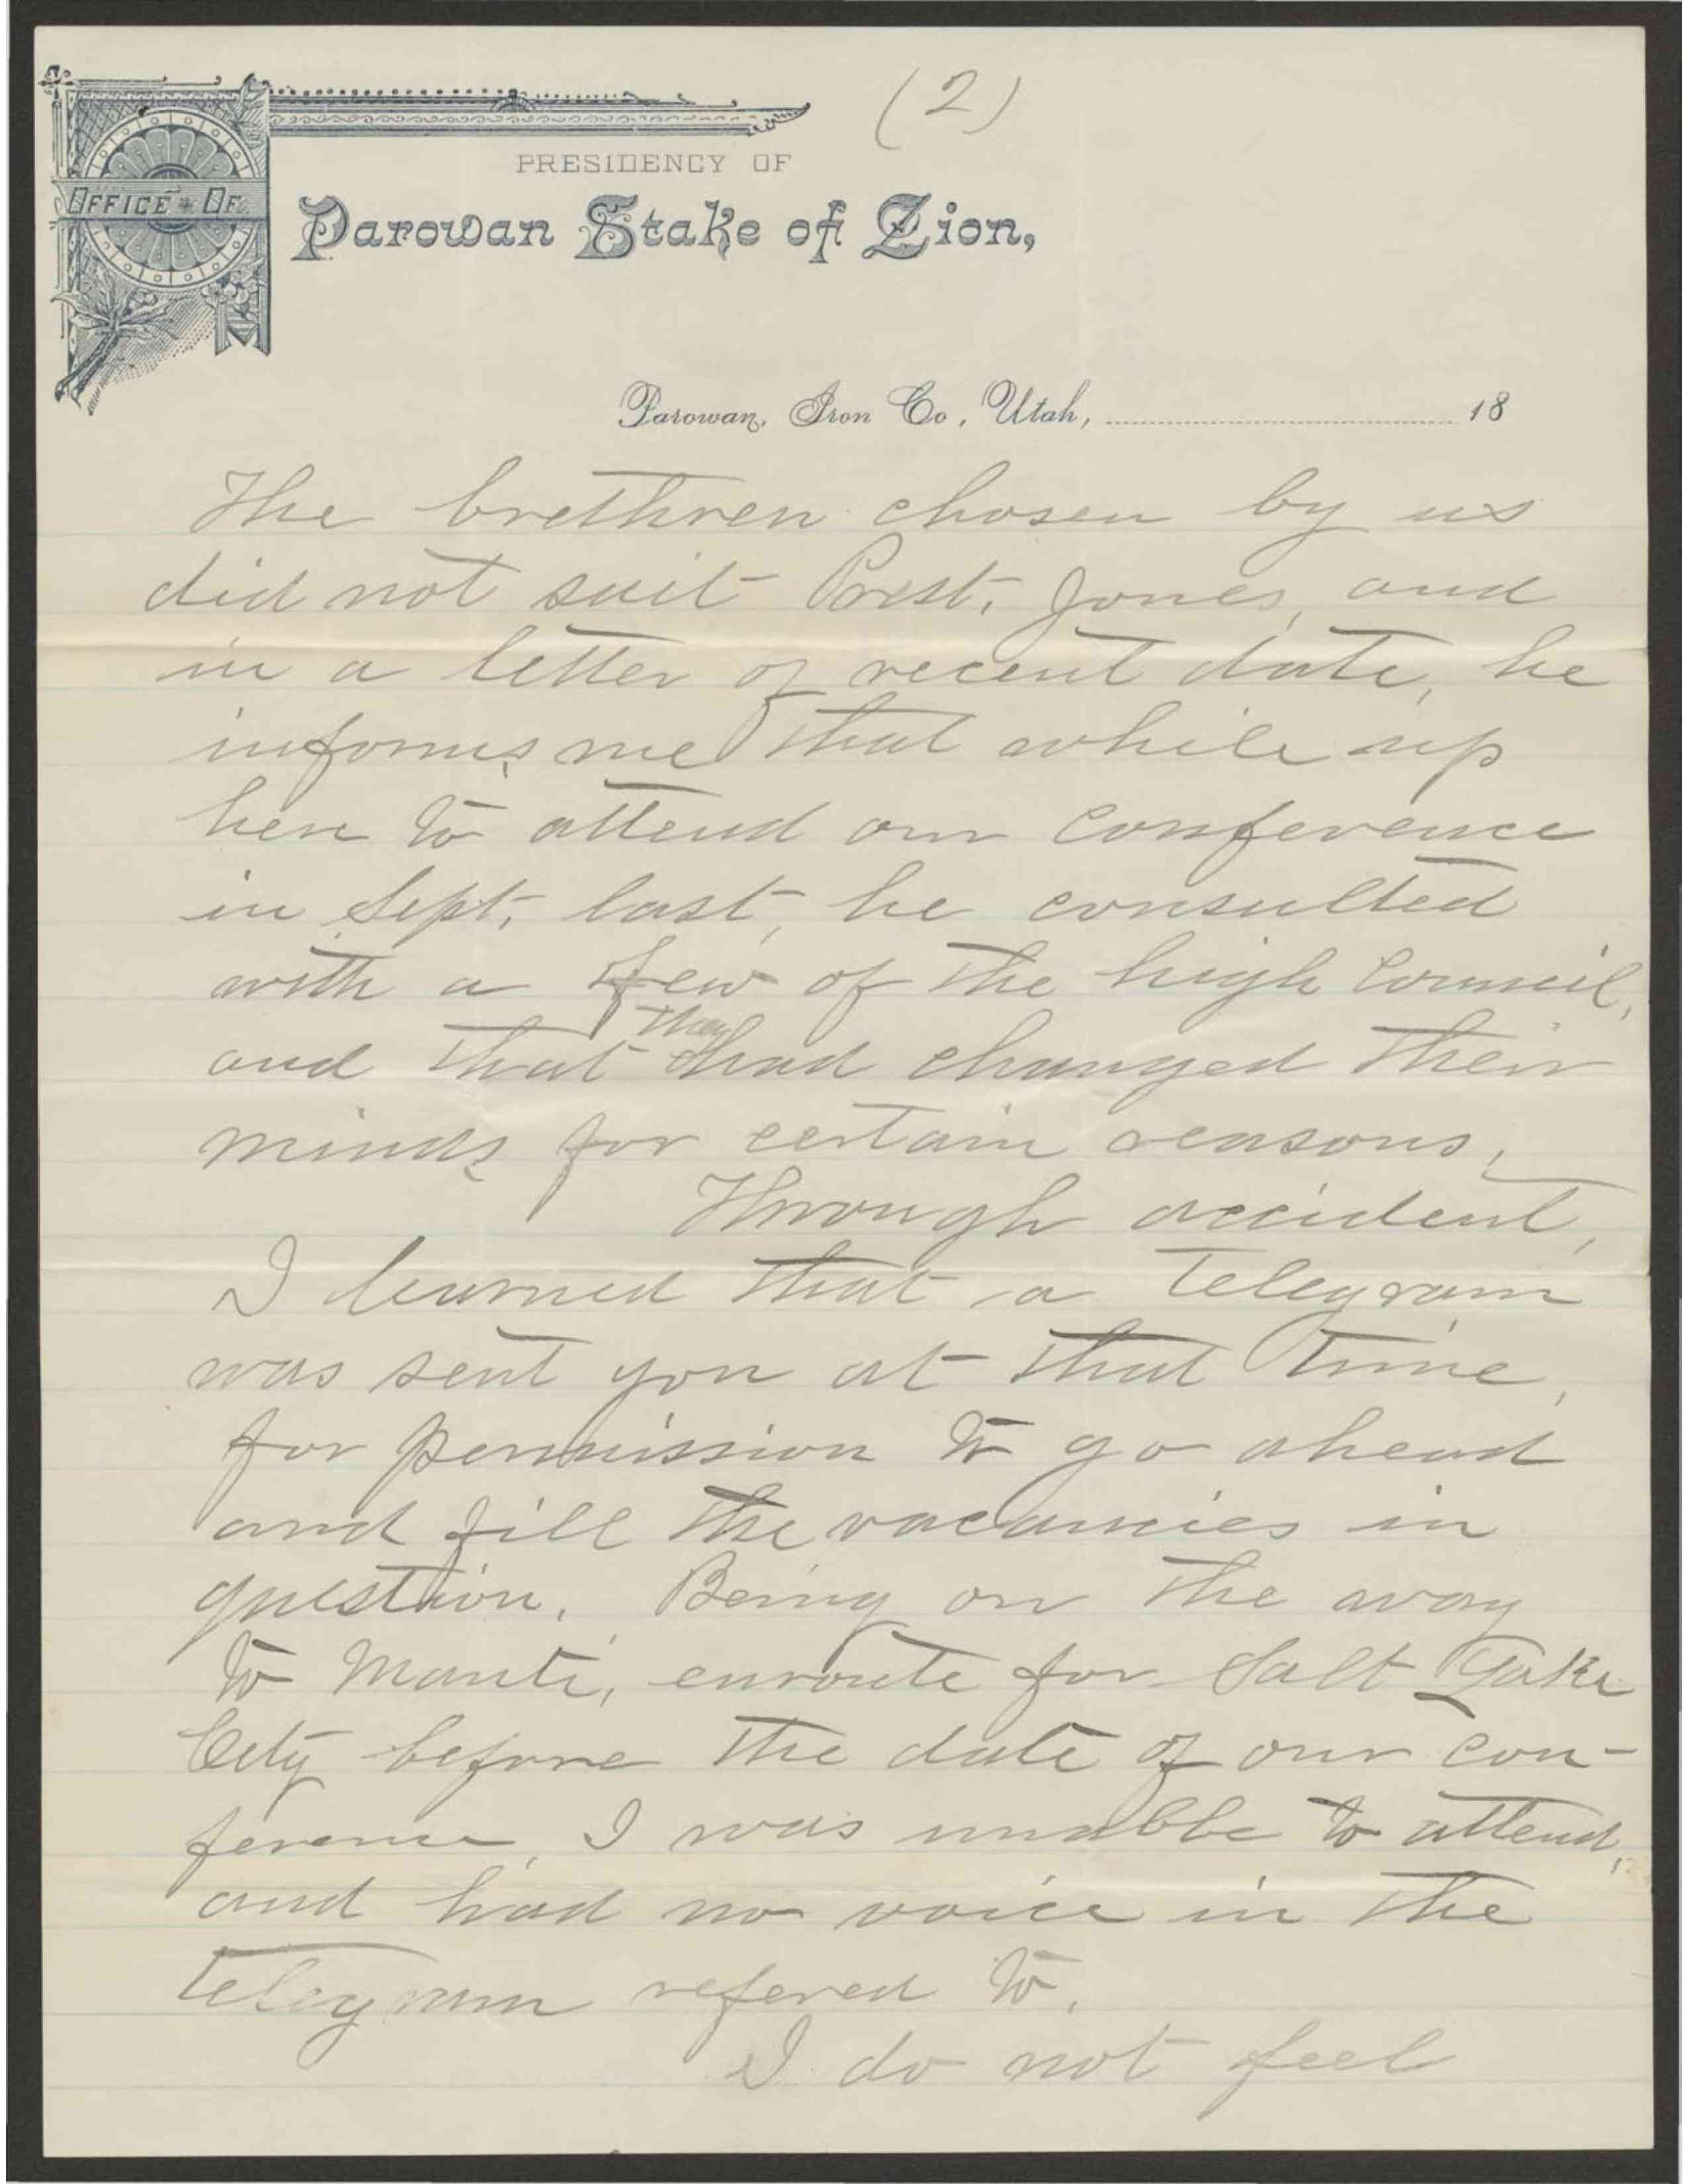 (2)
OFFICE OF
PRESIDENCY OF
Parowan Stake of Zion,
Parowan, Iron Co, Utah, 18
The brethren chosen by us
did not suit Prest. Jones, and
in a letter of recent date, he
informs me that while up
here to attend our conference
in Sept. last, he consulted
with a few of the high Council,
they
and that had changed their
minds for certain reasons,
Through accident,
I learned that a telegram
was sent you at that time,
for permission to go ahead
and fill the vacancies in
question. Being on the way
to Manti, enroute for Salt Lake
City before the date of our con-
ference, I was unable to attend,
and had no voice in the
telegram refered to.
I do not feel